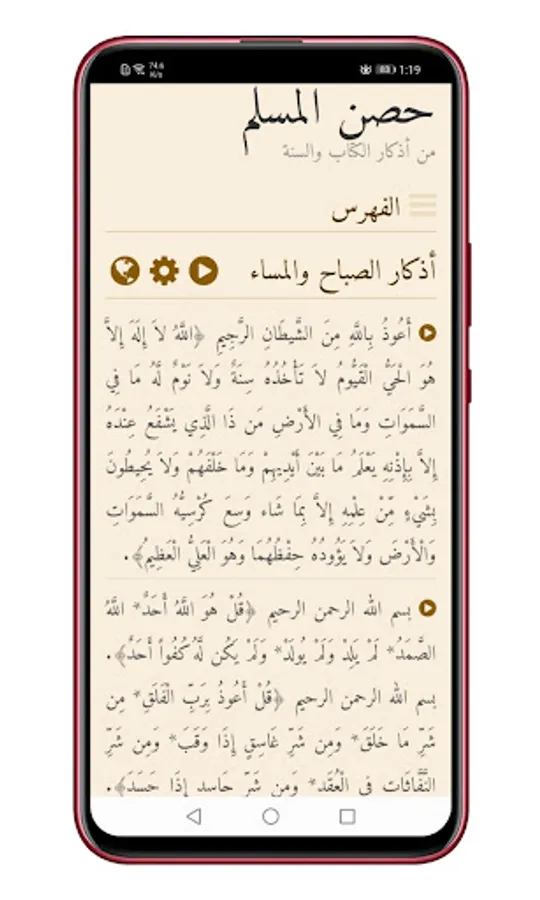 74.6
K/s
1:19
حصن المسلم
من أذكار الكتاب والسنة
الفهرس
أذكار الصباح والمساء
أَعُوذُ بِاللَّهِ مِنَ الشَّيطَانِ الرَّجِيمِ ﴿اللَّهُ لاَ إِلَهَ إِلاَّ
هُوَ الْحَيُّ الْقَيُّومُ لاَ تَأْخُذُهُ سِنَةٌ وَلاَ نَوْمٌ لَّهُ مَا فِي
السَّمَوَاتِ وَمَا فِي الأَرْضِ مَن ذَا الَّذِي يَشْفَعُ عِنْدَهُ
إِلاَّ بِإِذْنِهِ يَعْلَمُ مَا بَيْنَ أَيْدِيهِمْ وَمَا خَلْفَهُمْ وَلاَ يُحِيطُونَ
بِشَيْءٍ مِّنْ عِلْمِهِ إِلاَّ بِمَا شَاء وَسِعَ كُرْسِيُّهُ السَّمَوَاتِ
وَالْأَرْضَ وَلاَ يَؤُودُهُ حِفْظُهُمَا وَهُوَ الْعَلِيُّ الْعَظِيمُ﴾.
بسم الله الرحمن الرحيم ﴿قُلْ هُوَ اللَّهُ أَحَدٌ* اللَّهُ
الصَّمَدُ* لَمْ يَلِدْ وَلَمْ يُولَدْ* وَلَمْ يَكُن لَّهُ كُفُواً أَحَدٌ﴾.
بسم الله الرحمن الرحيم ﴿قُلْ أَعُوذُ بِرَبِّ الْفَلَقِ* مِن
شَرِّ مَا خَلَقَ* وَمِن شَرِّ غَاسِقٍ إِذَا وَقَبَ* وَمِن شَرِّ
النَّفَّاثَاتِ فِي الْعُقَدِ* وَمِن شَرِّ حَاسِدٍ إِذَا حَسَدَ﴾.